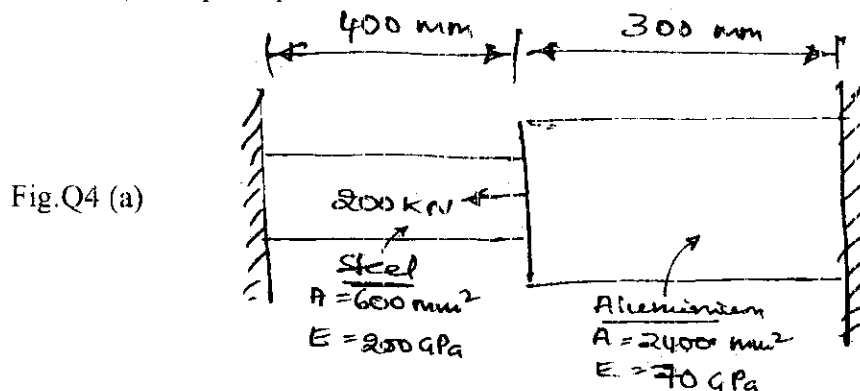 400 mm 300 mm
Fig.Q4 (a)
200 KN
Steel
A = 600 mm²
E = 200 GPa
Aluminium
A = 2400 mm²
E = 70 GPa